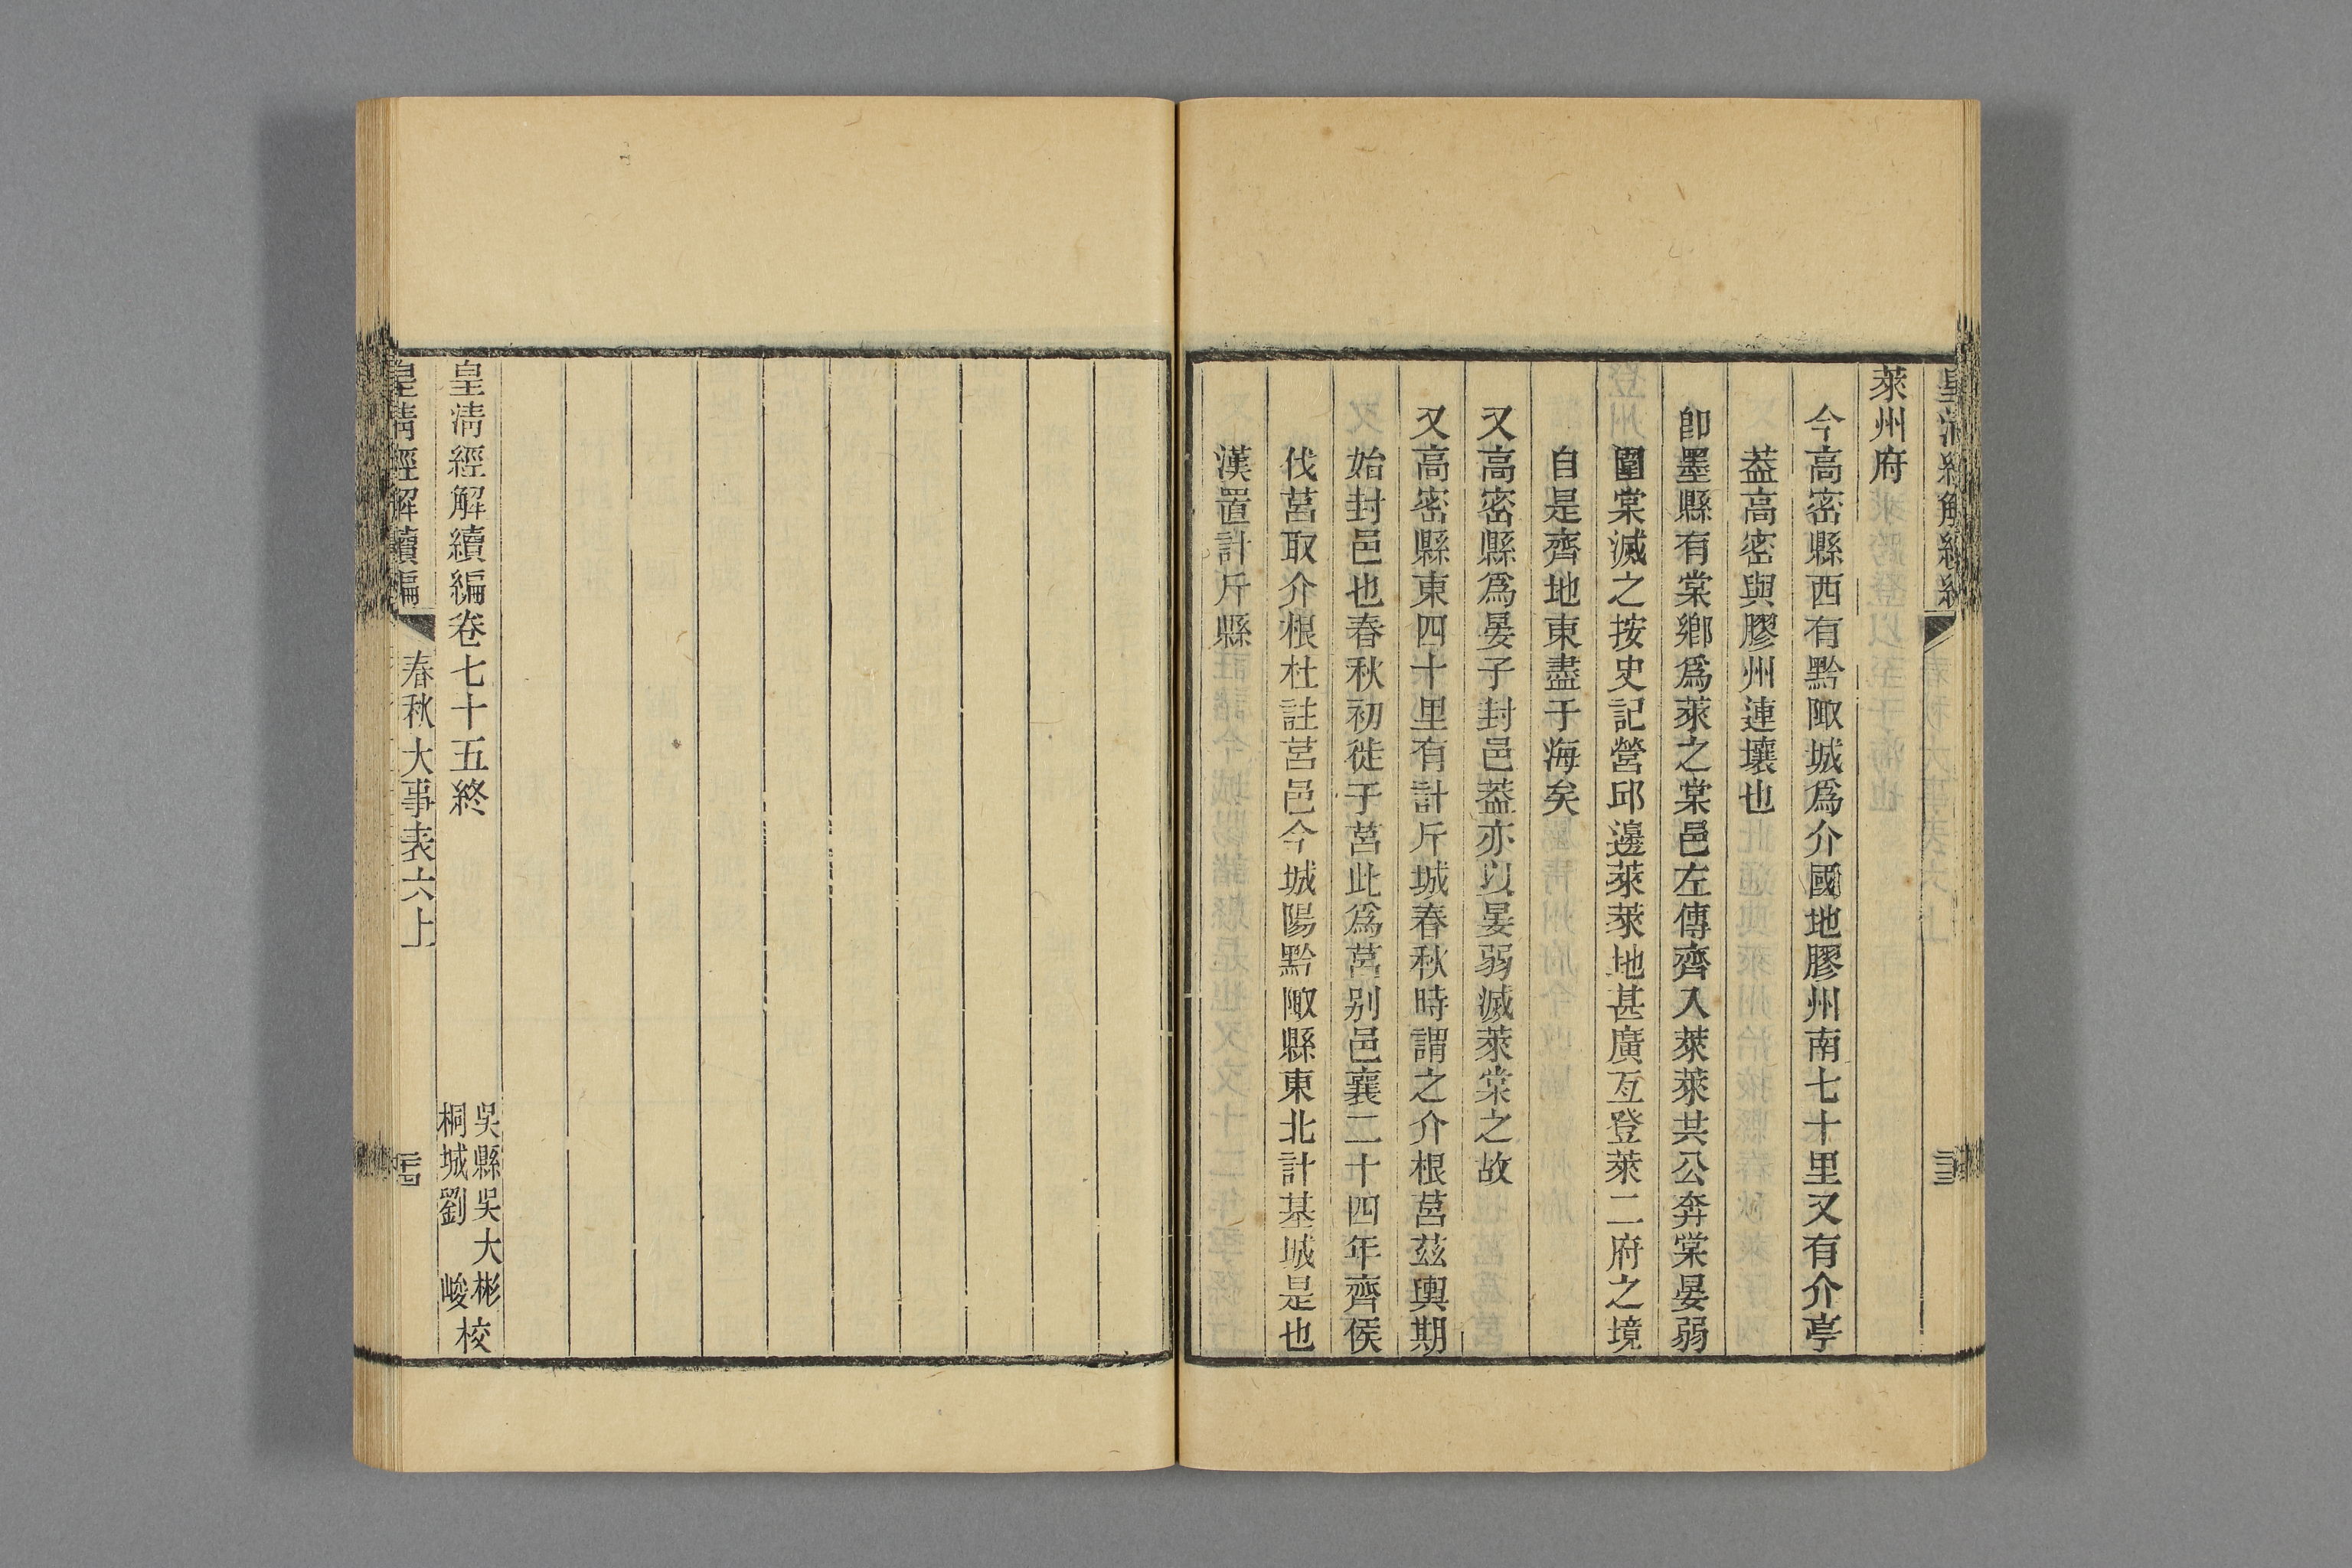 萊州府
今高密縣西有黔陬城爲介國地膠州南七十里又有介亭
葢高密與膠州連壤也
卽墨縣有棠鄉爲萊之棠邑左傳齊入萊萊共公奔棠晏弱
圍棠滅之按史記營邱邊萊萊地甚廣亙登萊二府之境
自是齊地東盡于海矣
又高密縣爲晏子封邑葢亦以晏弱滅萊棠之故
又高密縣東四十里有計斤城春秋時謂之介根莒茲輿期
始封邑也春秋初徙于莒此爲莒别邑襄二十四年齊侯
伐莒取介根杜註莒邑今城陽黔陬縣東北計基城是也
漢置計斤縣
皇淸經解續編卷七十五終
吳縣吳大彬
桐城劉　峻
校
皇淸經解續編
春秋大事表六上